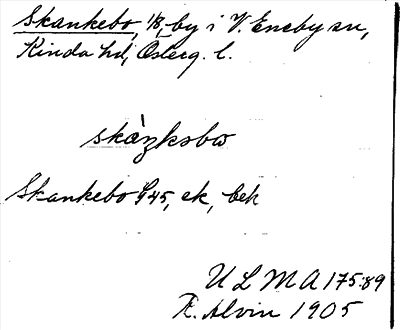 Skankebo, 1/8, by i V. Eneby sn,
Kinda hd, Österg. l.
skàŋksbω
Skankebo G45, ek, bek
ULMA 175:89
R. Alvin 1905